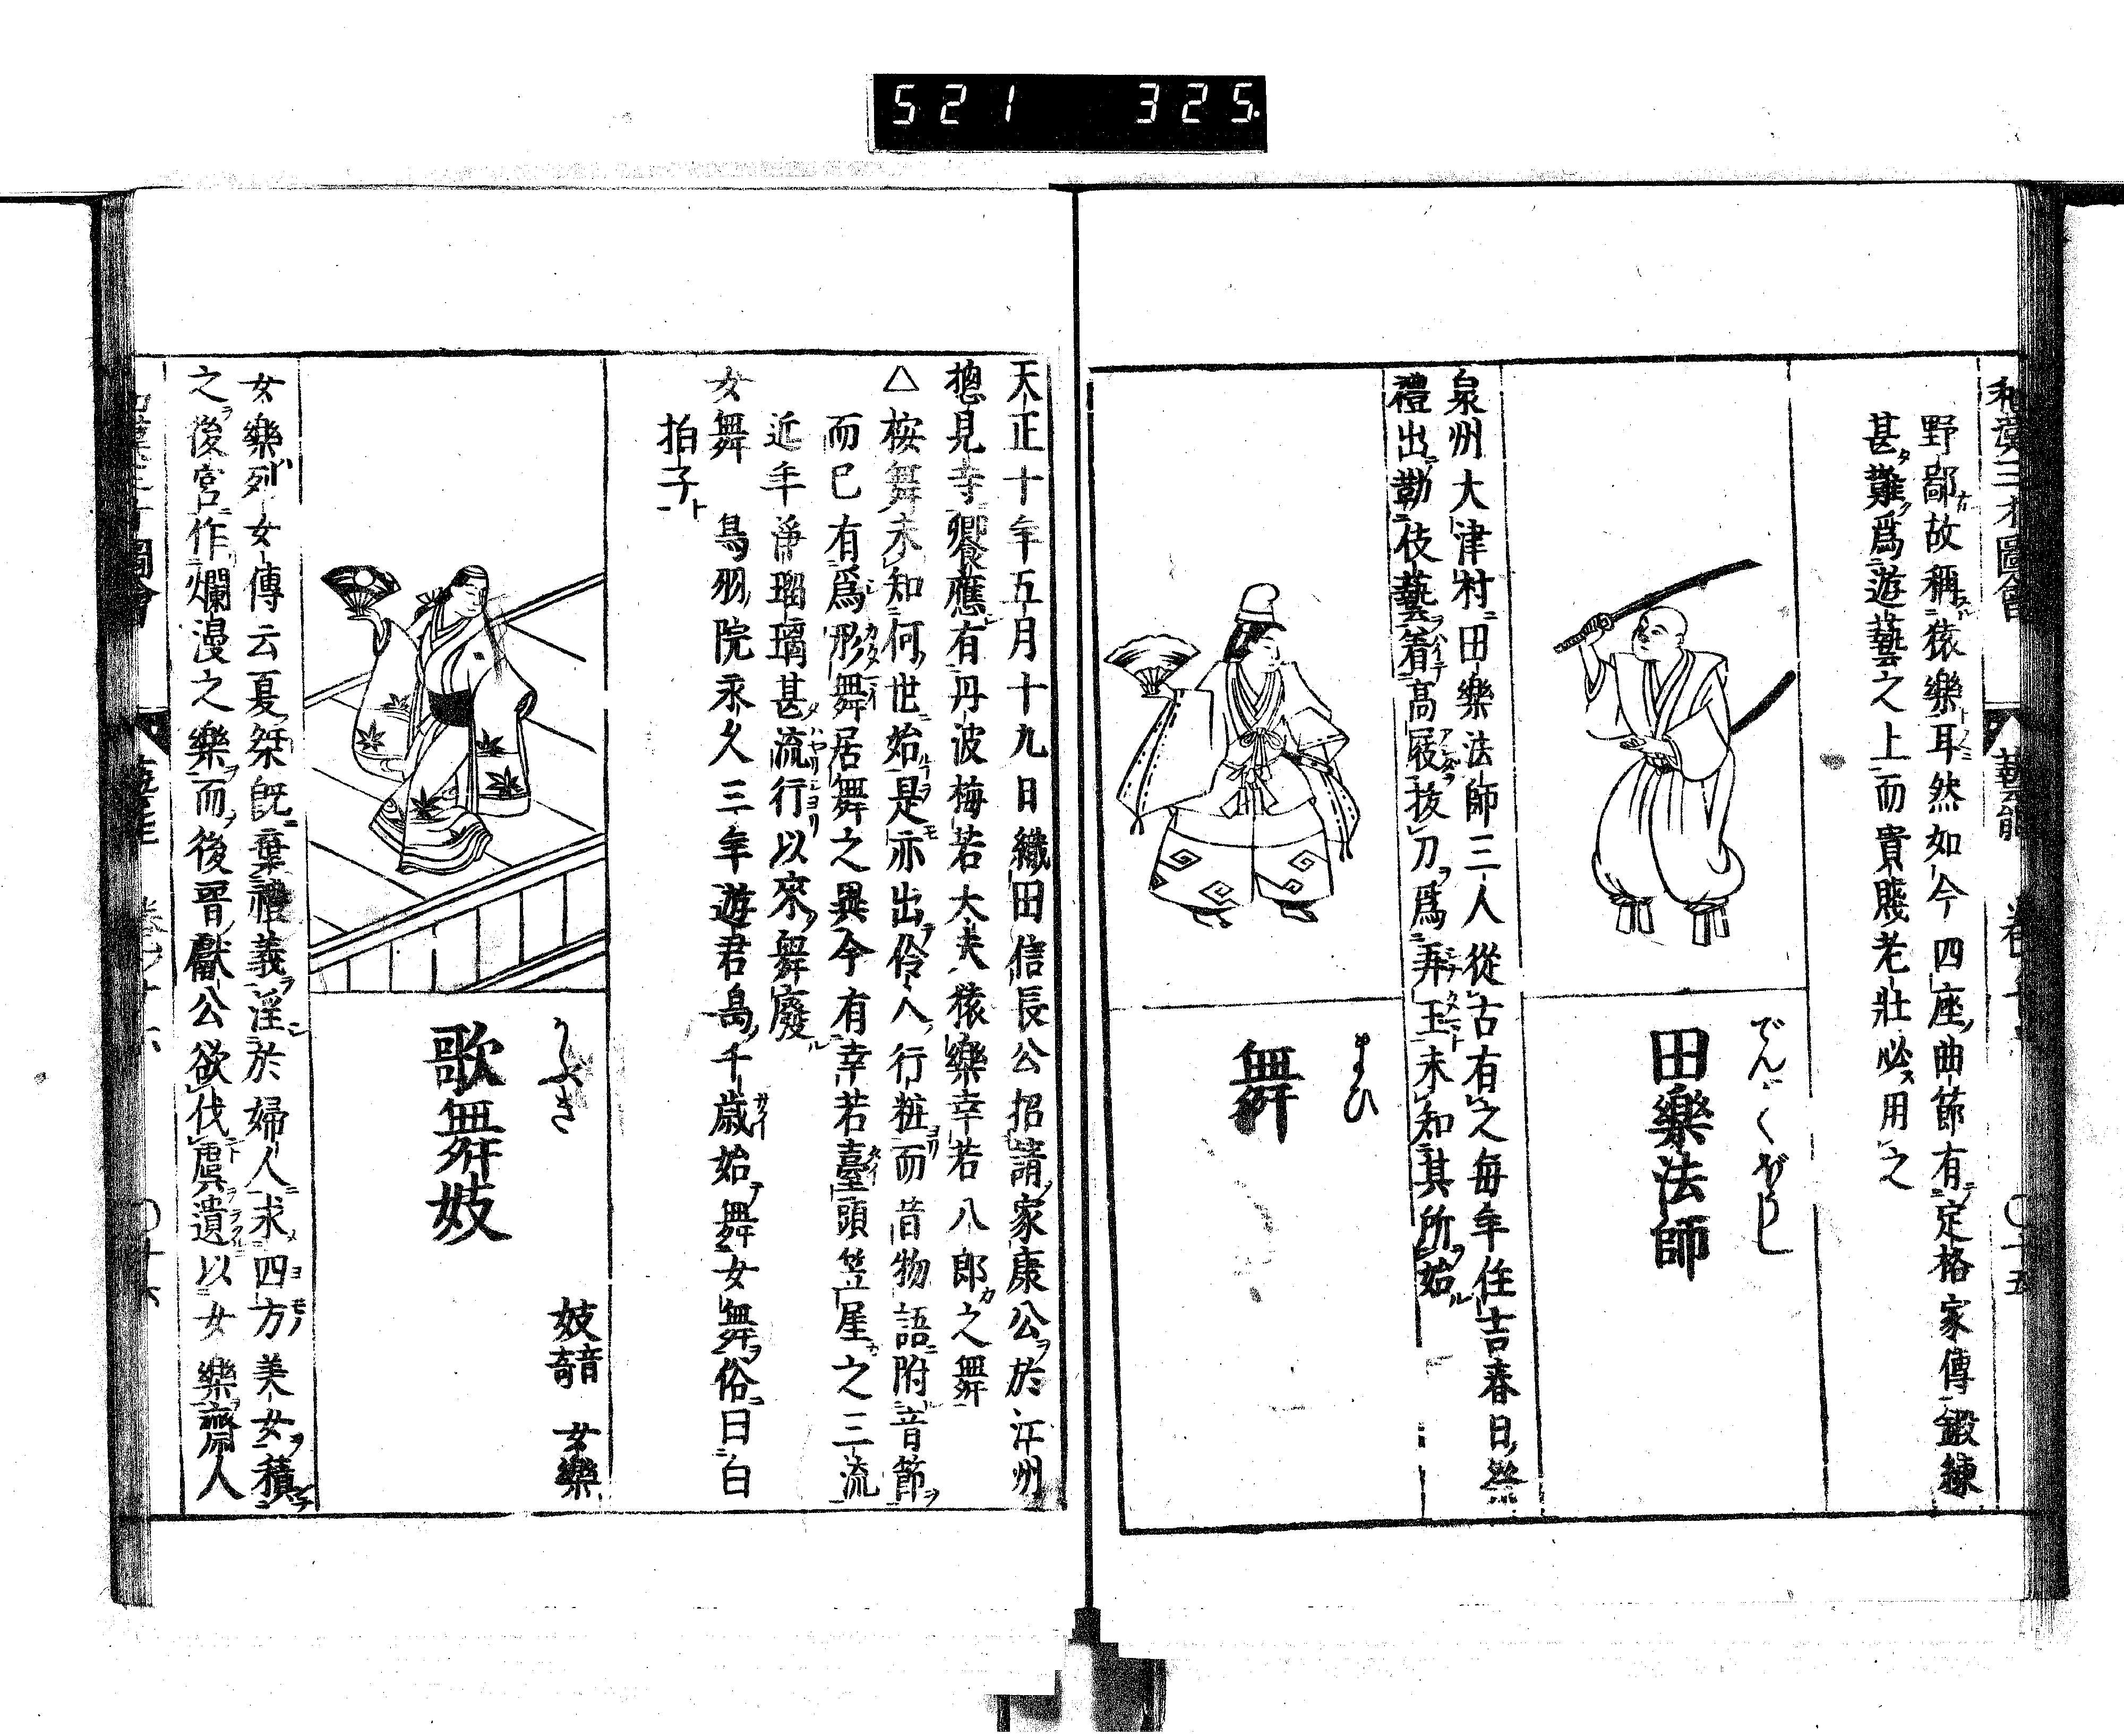 521 325
和漢三才圖會 藝能
野鄙故稱猿樂耳然如今四座曲節有定格家傳鍛練
甚難爲遊藝之上而貴賤老壯必用之
でんがくぼうし
田樂法師
泉州大津村田樂法師三人從古有之毎年住吉春日祭
禮出勤伎藝着高屐抜刀爲弄玉未知其所始
まひ
舞
天正十年五月十九日織田信長公招請家康公於江州
摠見寺饗應有丹波梅若大夫猿樂幸若八郎之舞
△按舞未知何世始是亦出伶人行粧而昔物語附音節
而已有爲形舞居舞之異今有幸若臺頭笠屋之三流
近年淨瑠璃甚流行以來舞廢
女舞 鳥羽院永久三年遊君島千歳始舞女舞俗曰白
拍子
かぶき
歌舞妓
妓音奇 女樂
女樂列女傳云夏桀既棄禮義淫於婦人求四方美女積
之後宮作爛漫之樂而後晉獻公欲伐虞遺以女樂齊人